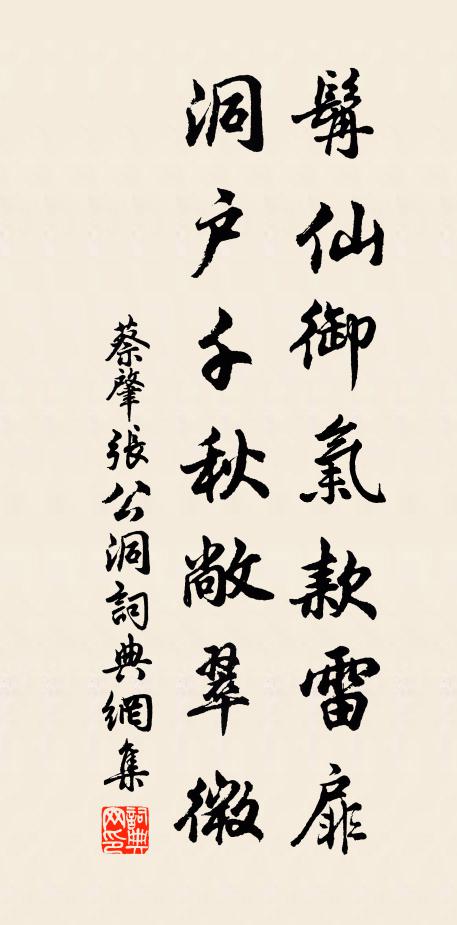 髯仙御氣款雷扉
洞户千秋敞翠微
蔡肇張公洞詞典網集
詞典網印